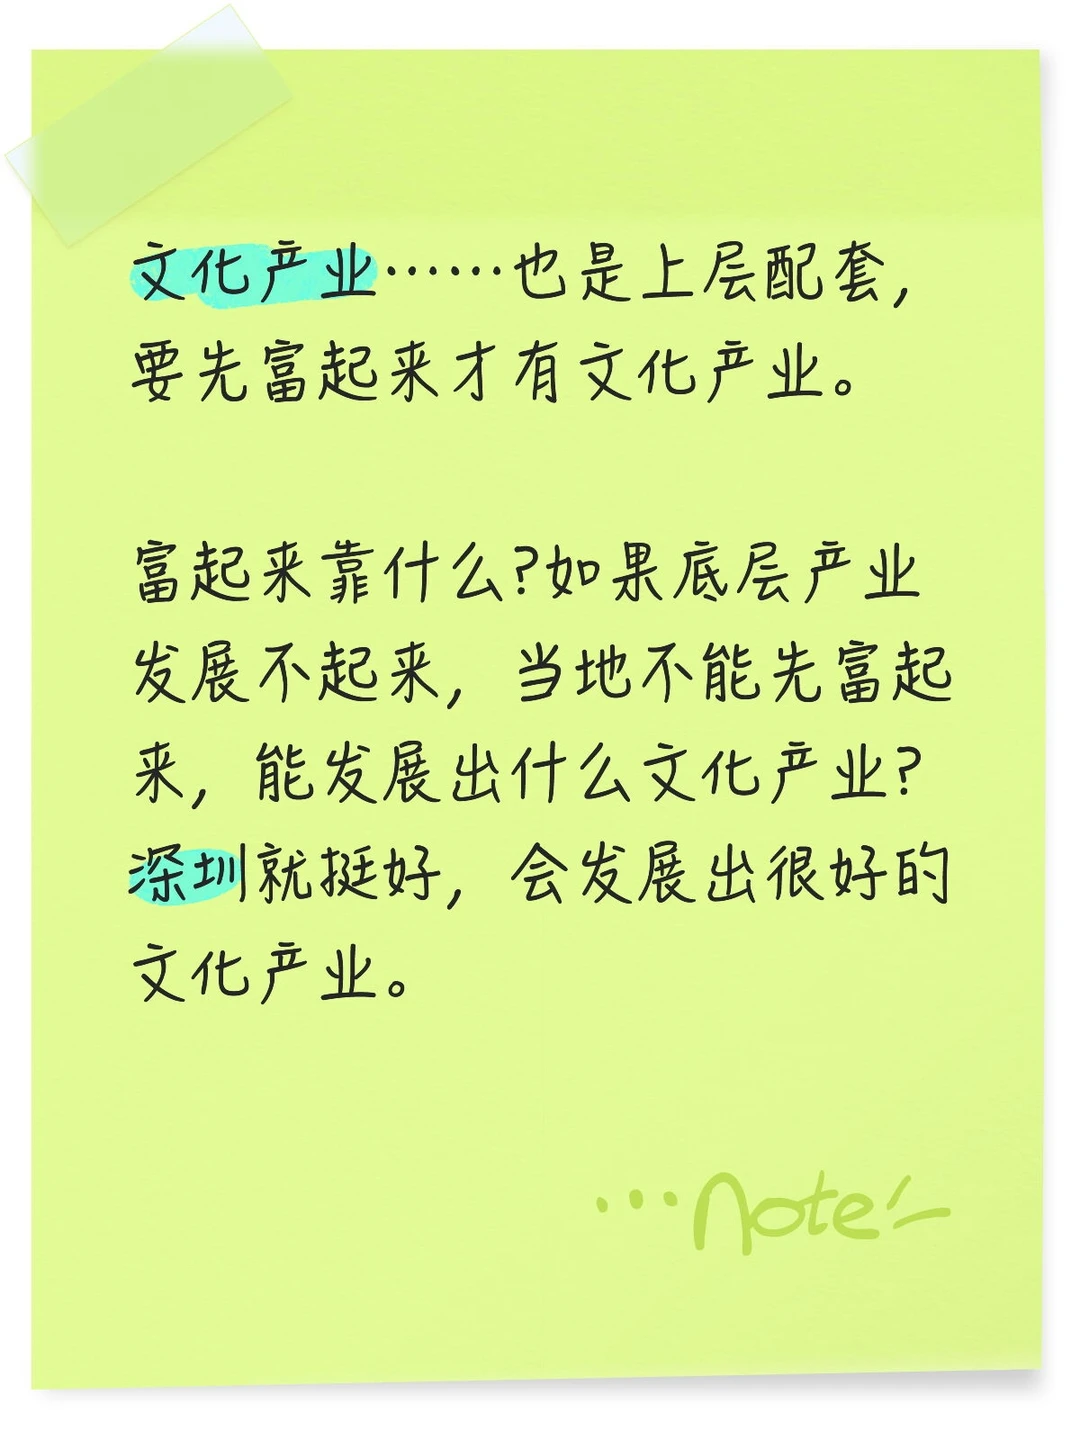 文化产业……也是上层配套，
要先富起来才有文化产业。
富起来靠什么？如果底层产业
发展不起来，当地不能先富起
来，能发展出什么文化产业？
深圳就挺好，会发展出很好的
文化产业。
...note